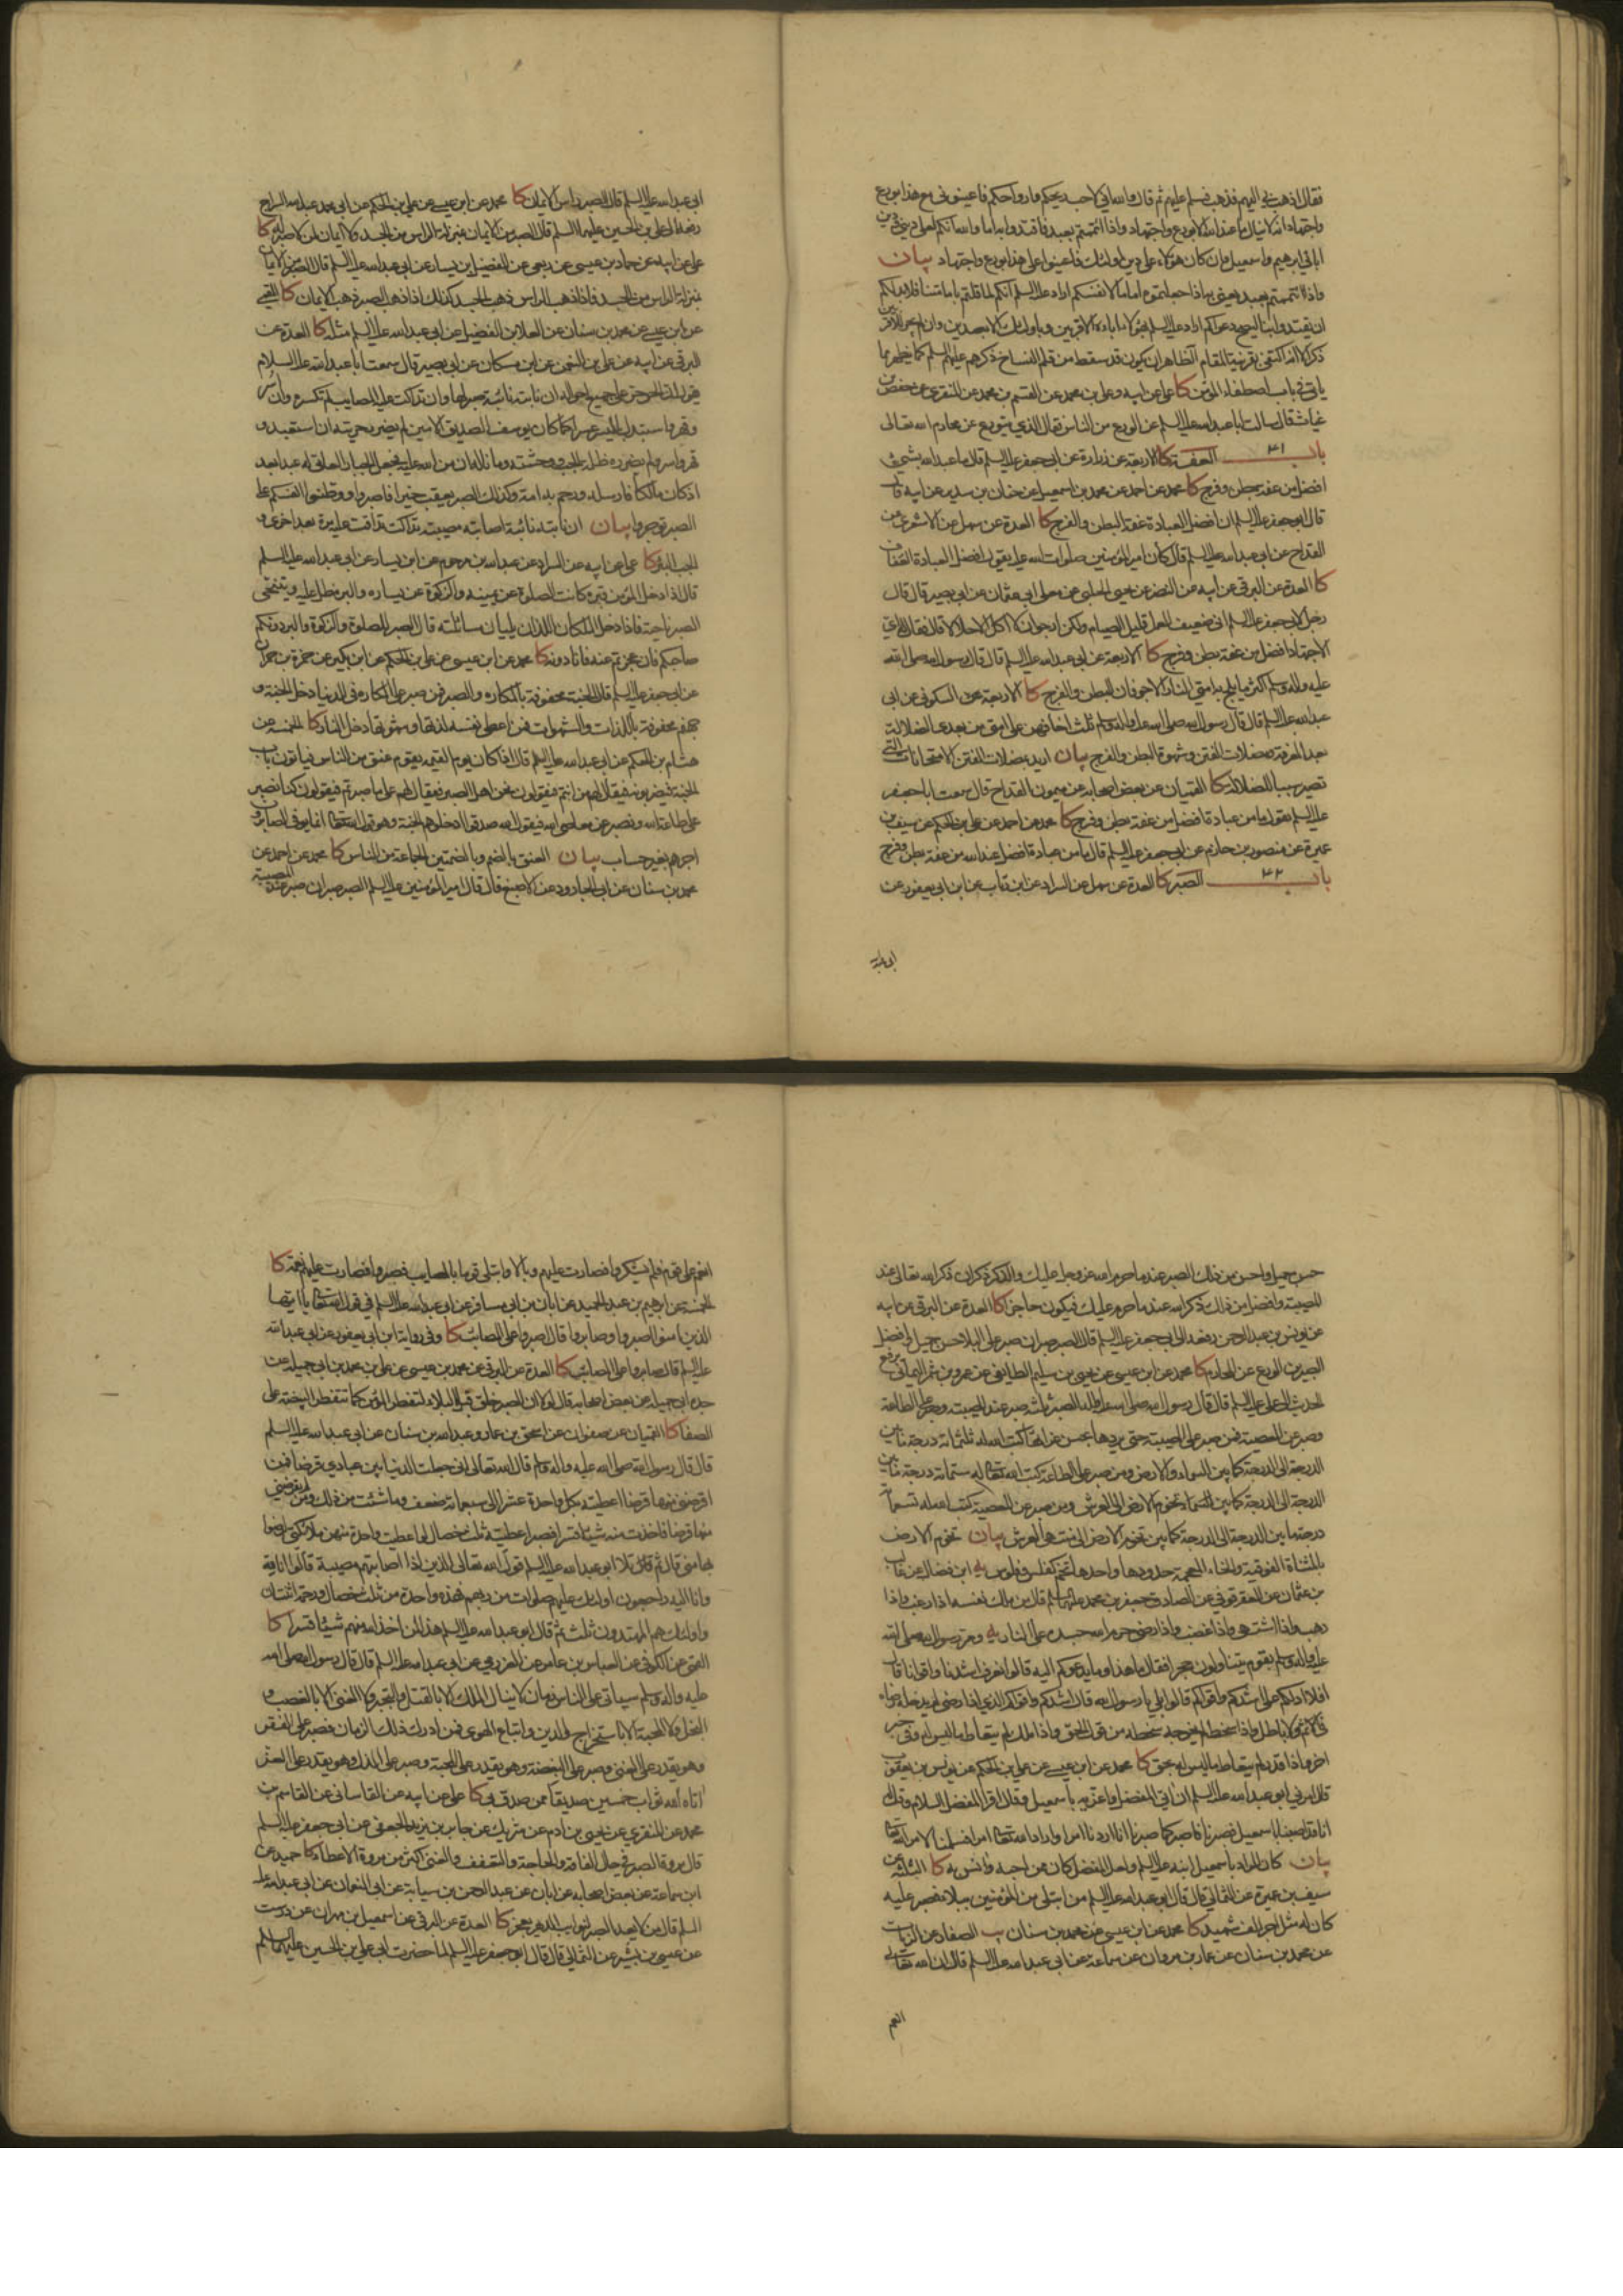 فقال اذهب بي اليهم فذهب فسلم عليهم ثم قال والله اني لاحب ريحكم وارواحكم فاعينوني مع هذا بورع
واجتهاد انه لا ينال ما عند الله الا بورع واجتهاد واذا ائتممتم بعبد فاقتدوا به اما والله انكم لعلى ديني ودين
ابائي ابرهيم واسمعيل وان كان هؤلاء على دين اولئك فاعينوا على هذا بورع واجتهاد بيان
واذا ائتممتم بعبد يعني به اذا جعلتموه اماما لانفسكم اراد عليه السلم انكم لما قلتم بامامتنا فلا بد لكم
ان تقتدوا بنا
ذكر
ياتي في باب اصطفاء المؤمن كا علي عن ابيه وعلي بن محمد عن القسم بن محمد عن المنقري عن حفص بن
غياث قال سالت ابا عبد الله عليه السلم عن الورع من الناس فقال الذي يتورع عن محارم الله تعالى
باب ٤١ العفة كا الاربعة عن زرارة عن ابي جعفر عليه السلم قال ما عبد الله بشيء
افضل من عفة بطن وفرج كا محمد عن احمد عن محمد بن اسمعيل عن حنان بن سدير عن ابيه قال
قال ابو جعفر عليه السلم ان افضل العبادة عفة البطن والفرج كا العدة عن سهل عن الاشعري عن
القداح عن ابي عبد الله عليه السلم قال كان امير المؤمنين صلوات الله عليه يقول افضل العبادة العفاف
كا العدة عن البرقي عن ابيه عن النضر عن يحيى الحلبي عن معلى ابي عثمان عن ابي بصير قال قال
رجل لابي جعفر عليه السلم اني ضعيف العمل قليل الصيام ولكن ارجو ان لا اكل الا حلالا قال فقال له اي
الاجتهاد افضل من عفة بطن وفرج كا الاربعة عن ابي عبد الله عليه السلم قال قال رسول الله صلى الله
عليه واله وسلم اكثر ما يلج به امتي النار الاجوفان البطن والفرج كا الاربعة عن السكوني عن ابي
عبد الله عليه السلم قال قال رسول الله صلى الله عليه واله وسلم ثلث اخافهن على امتي من بعدي الضلالة
بعد المعرفة ومضلات الفتن وشهوة البطن والفرج بيان اريد بمضلات الفتن الامتحانات التي
تصير سببا للضلالة كا القميان عن بعض اصحابه عن ميمون القداح قال سمعت ابا جعفر
عليه السلم يقول ما من عبادة افضل من عفة بطن وفرج كا محمد عن احمد عن علي بن الحكم عن سيف بن
عميرة عن منصور بن حازم عن ابي جعفر عليه السلم قال ما من عبادة افضل عند الله من عفة بطن وفرج
باب ٤٢ الصبر كا العدة عن سهل عن السراد عن ابن رئاب عن ابن ابي يعفور عن
ابي عبد الله عليه السلم قال الصبر راس الايمان كا محمد عن ابن عيسى عن علي بن الحكم عن ابي محمد عبد الله السراج
رفعه الى علي بن الحسين عليهما السلم قال الصبر من الايمان بمنزلة الراس من الجسد ولا ايمان لمن لا صبر له كا
علي عن ابيه عن حماد بن عيسى عن ربعي عن الفضيل بن يسار عن ابي عبد الله عليه السلم قال الصبر من الايمان
بمنزلة الراس من الجسد فاذا ذهب الراس ذهب الجسد كذلك اذا ذهب الصبر ذهب الايمان كا
عن ابن عيسى عن محمد بن سنان عن العلا بن الفضيل عن ابي عبد الله عليه السلم مثله كا العدة عن
البرقي عن ابيه عن علي بن النعمن عن ابن مسكان عن ابي بصير قال سمعت ابا عبد الله عليه السلام
يقول ان الحر حر على جميع احواله ان نابته نائبة صبر لها وان تداكت عليه المصايب لم تكسره وان اسر
وقهر واستبدل باليسر عسرا كما كان يوسف الصديق الامين لم يضرر حريته ان استعبد و
قهر واسر ولم يضرره ظلمة الجب ووحشته وما ناله ان من الله عليه فجعل الجبار العاتي له عبدا بعد
اذ كان مالكا فارسله ورحم به امة وكذلك الصبر يعقب خيرا فاصبروا ووطنوا انفسكم على
الصبر توجروا بيان ان نابته نائبة اصابته مصيبة تداكت تداقت عليه مرة بعد اخرى و
الجب البئر كا علي عن ابيه عن السراد عن عبد الله بن مرحوم عن ابن يسار عن ابي عبد الله عليه السلم
قال اذا دخل المؤمن قبره كانت الصلوة عن يمينه والزكوة عن يساره والبر مطل عليه ويتنحى
الصبر ناحية فاذا دخل الملكان اللذان يليان مسائلته قال الصبر للصلوة والزكوة والبر دونكم
صاحبكم فان عجزتم عنه فانا دونه كا محمد عن ابن عيسى عن علي بن الحكم عن ابن بكير عن حمزة بن حمران
عن ابي جعفر عليه السلم قال الجنة محفوفة بالمكاره والصبر فمن صبر على المكاره في الدنيا دخل الجنة و
جهنم محفوفة باللذات والشهوات فمن اعطى نفسه لذتها وشهوتها دخل النار كا الخمسة عن
هشام بن الحكم عن ابي عبد الله عليه السلم قال اذا كان يوم القيمة يقوم عنق من الناس فياتون باب
الجنة فيضربونه فيقال لهم من انتم فيقولون نحن اهل الصبر فيقال لهم على ما صبرتم فيقولون كنا نصبر
على طاعة الله ونصبر عن معاصي الله فيقول الله صدقوا ادخلوهم الجنة وهو قول الله تعالى انما يوفى الصابرون
اجرهم بغير حساب بيان العنق بالضم وبالضمتين الجماعة من الناس كا محمد عن احمد عن
محمد بن سنان عن ابي الجارود عن الاصبغ قال قال امير المؤمنين عليه السلم الصبر صبران صبر عند المصيبة
حسن جميل واحسن من ذلك الصبر عند ما حرم الله عز وجل عليك والذكر ذكران ذكر الله تعالى عند
المصيبة وافضل من ذلك ذكر الله عند ما حرم عليك فيكون حاجزا كا العدة عن البرقي عن ابيه
عن يونس بن عبد الرحمن رفعه الى ابي جعفر عليه السلم قال الصبر صبران صبر على البلاء حسن جميل وافضل
الصبرين الورع عن المحارم كا محمد عن ابن عيسى عن يحيى بن سليم الطايفي عن عمرو بن شمر اليماني يرفع
الحديث الى علي عليه السلم قال قال رسول الله صلى الله عليه واله الصبر ثلثة صبر عند المصيبة وصبر على الطاعة
وصبر عن المعصية فمن صبر على المصيبة حتى يردها بحسن عزائها كتب الله له ثلثمائة درجة ما بين
الدرجة الى الدرجة كما بين السماء والارض ومن صبر على الطاعة كتب الله تعالى له ستمائة درجة ما بين
الدرجة الى الدرجة كما بين تخوم الارض الى العرش ومن صبر عن المعصية كتب الله له تسعمائة
درجة ما بين الدرجة الى الدرجة كما بين تخوم الارض الى منتهى العرش بيان تخوم الارض
بالمثناة الفوقية والخاء المعجمة حدودها واحدها تخم كفلس وفلوس يه ابن فضال عن غالب
بن عثمان عن العقرقوفي عن الصادق جعفر بن محمد عليهما السلم قال من ملك نفسه اذا رغب واذا
رهب واذا اشتهى واذا غضب واذا رضي حرم الله جسده على النار يه ومر رسول الله صلى الله
عليه واله وسلم بقوم يتشاولون حجرا فقال ما هذا وما يدعوكم اليه قالوا لنعرف اشدنا واقوانا قال
افلا ادلكم على اشدكم واقواكم قالوا بلى يا رسول الله قال اشدكم واقواكم الذي اذا رضي لم يدخله رضاه
في اثم ولا باطل واذا سخط لم يخرجه سخطه من قول الحق واذا ملك لم يتعاط ما ليس له وفي خبر
اخر واذا قدر لم يتعاط ما ليس له بحق كا محمد عن ابن عيسى عن علي بن الحكم عن يونس بن يعقوب
قال امرني ابو عبد الله عليه السلم ان اتي المفضل واعزيه باسمعيل وقال اقرأ المفضل السلام وقل له
انا قد اصبنا باسمعيل فصبرنا فاصبر كما صبرنا انا اردنا امرا واراد الله تعالى امرا فسلمنا لامر الله تعالى
بيان كان المراد باسمعيل ابنه عليه السلم ولعل المفضل كان ممن احبه وانس به كا الثلثة عن
سيف بن عميرة عن الثمالي قال قال ابو عبد الله عليه السلم من ابتلي من المؤمنين ببلاء فصبر عليه
كان له مثل اجر الف شهيد كا محمد عن ابن عيسى عن محمد بن سنان يب الصفار عن الزيات
عن محمد بن سنان عن عمار بن مروان عن سماعة عن ابي عبد الله عليه السلم قال ان الله تعالى
انعم
انعم على قوم فلم يشكروا فصارت عليهم وبالا وابتلى قوما بالمصايب فصبروا فصارت عليهم نعمة كا
الخمسة عن ابرهيم بن عبد الحميد عن ابان بن ابي مسافر عن ابي عبد الله عليه السلم في قول الله تعالى يا ايها
الذين امنوا اصبروا وصابروا قال اصبروا على المصائب كا وفي رواية ابن ابي يعفور عن ابي عبد الله
عليه السلم قال صابروا على المصائب كا العدة عن البرقي عن محمد بن عيسى عن علي بن محمد بن ابي جميلة عن
جده ابي جميلة عن بعض اصحابه قال لولا ان الصبر خلق قبل البلاء لتفطر المؤمن كما تتفطر البيضة على
الصفا كا القميان عن صفوان عن اسحق بن عمار وعبد الله بن سنان عن ابي عبد الله عليه السلم
قال قال رسول الله صلى الله عليه واله وسلم قال الله تعالى اني جعلت الدنيا بين عبادي قرضا فمن
اقرضني منها قرضا اعطيته بكل واحدة عشرا الى سبعمائة ضعف وما شئت من ذلك ومن لم يقرضني
منها قرضا فاخذت منه شيئا قسرا فصبر اعطيته ثلث خصال لو اعطيت واحدة منهن ملائكتي لرضوا
بها مني قال ثم تلا ابو عبد الله عليه السلم قول الله تعالى الذين اذا اصابتهم مصيبة قالوا انا لله
وانا اليه راجعون اولئك عليهم صلوات من ربهم فهذه واحدة من ثلث خصال ورحمة اثنتان
واولئك هم المهتدون ثلث ثم قال ابو عبد الله عليه السلم هذا لمن اخذ الله منه شيئا قسرا كا
القمي عن الكوفي عن العباس بن عامر عن العرزمي عن ابي عبد الله عليه السلم قال قال رسول الله صلى الله
عليه واله وسلم سياتي على الناس زمان لا ينال الملك الا بالقتل والتجبر ولا الغنى الا بالغصب و
البخل ولا المحبة الا باستخراج الدين واتباع الهوى فمن ادرك ذلك الزمان فصبر على الفقر
وهو يقدر على الغنى وصبر على البغضة وهو يقدر على المحبة وصبر على الذل وهو يقدر على العز
اتاه الله ثواب خمسين صديقا ممن صدق بي كا علي عن ابيه عن القاساني عن القاسم بن
محمد عن المنقري عن يحيى بن ادم عن شريك عن جابر بن يزيد الجعفي عن ابي جعفر عليه السلم
قال مروة الصبر في حال الفاقة والحاجة والتعفف والغنى اكثر من مروة الاعطاء كا حميد عن
ابن سماعة عن بعض اصحابه عن ابان عن عبد الرحمن بن سيابة عن ابي النعمان عن ابي عبد الله عليه
السلم قال من لا يعد الصبر لنوائب الدهر يعجز كا العدة عن البرقي عن اسمعيل بن مهران عن درست
عن عيسى بن بشير عن الثمالي قال قال ابو جعفر عليه السلم لما حضرت ابي علي بن الحسين عليهما السلم